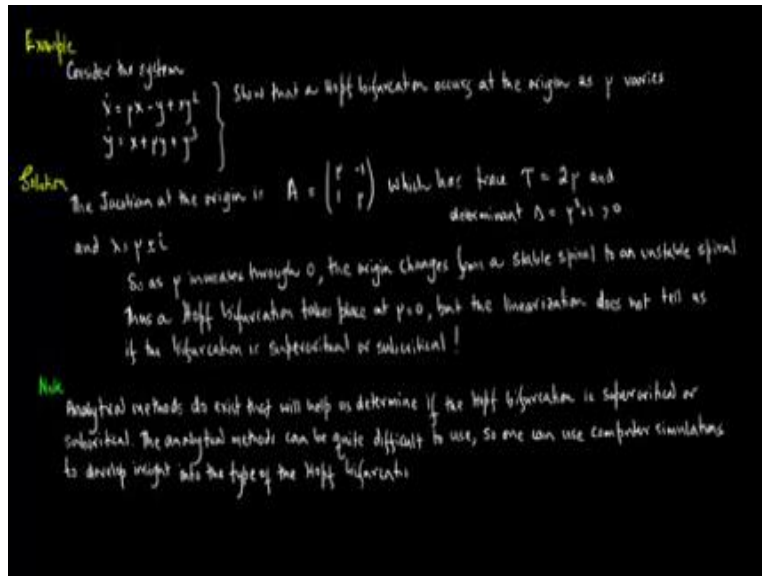 Example
Consider the system
ẋ = μx - y + xy²
ẏ = x + μy + y³
Show that a Hopf bifurcation occurs at the origin as μ varies
Solution
The Jacobian at the origin is A = (μ -1
1 μ) which has trace T = 2μ and
determinant Δ = μ²+1 > 0
and λ = μ ± i
So as μ increases through 0, the origin changes from a stable spiral to an unstable spiral
Thus a Hopf bifurcation takes place at μ=0, but the linearization does not tell us
if the bifurcation is supercritical or subcritical !
Note
Analytical methods do exist that will help us determine if the Hopf bifurcation is supercritical or
subcritical. The analytical methods can be quite difficult to use, so one can use computer simulations
to develop insight into the type of the Hopf bifurcatio